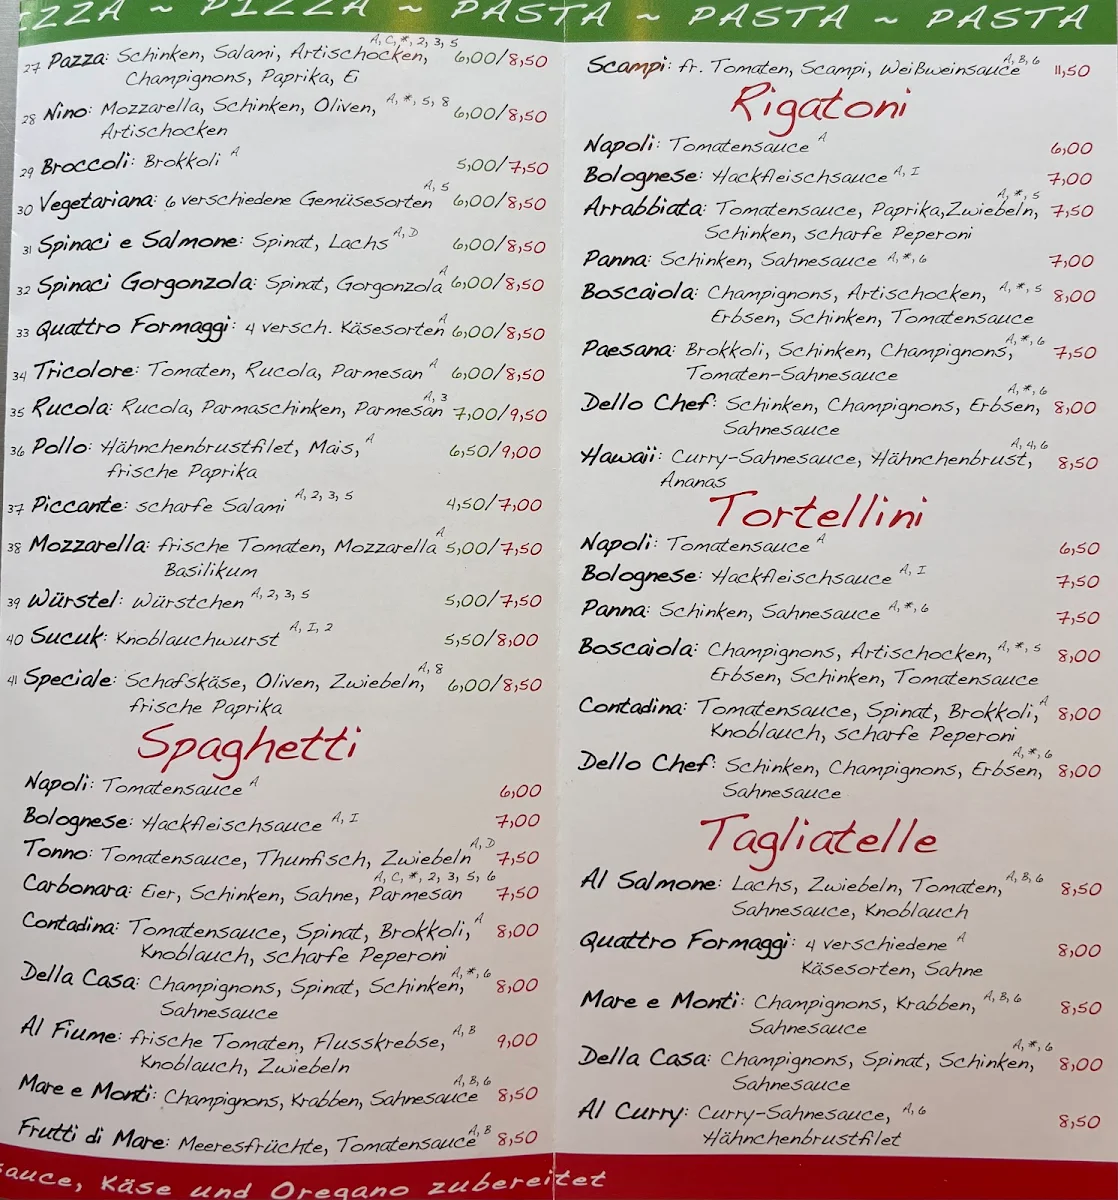 PIZZA ~ PIZZA ~ PASTA ~ PASTA ~ PASTA
27 Pazza: Schinken, Salami, Artischocken, A, C, *, 2, 3, 5 6,00/8,50
Champignons, Paprika, Ei
28 Nino: Mozzarella, Schinken, Oliven, A, *, 5, 8 6,00/8,50
Artischocken
29 Broccoli: Brokkoli A 5,00/7,50
30 Vegetariana: 6 verschiedene Gemüsesorten A, 5 6,00/8,50
31 Spinaci e Salmone: Spinat, Lachs A, D 6,00/8,50
32 Spinaci Gorgonzola: Spinat, Gorgonzola A 6,00/8,50
33 Quattro Formaggi: 4 versch. Käsesorten A 6,00/8,50
34 Tricolore: Tomaten, Rucola, Parmesan A 6,00/8,50
35 Rucola: Rucola, Parmaschinken, Parmesan A, 3 7,00/9,50
36 Pollo: Hähnchenbrustfilet, Mais, A 6,50/9,00
frische Paprika
37 Piccante: scharfe Salami A, 2, 3, 5 4,50/7,00
38 Mozzarella: frische Tomaten, Mozzarella A 5,00/7,50
Basilikum
39 Würstel: Würstchen A, 2, 3, 5 5,00/7,50
40 Sucuk: Knoblauchwurst A, I, 2 5,50/8,00
41 Speciale: Schafskäse, Oliven, Zwiebeln, A, 8 6,00/8,50
frische Paprika
Spaghetti
Napoli: Tomatensauce A 6,00
Bolognese: Hackfleischsauce A, I 7,00
Tonno: Tomatensauce, Thunfisch, Zwiebeln A, D 7,50
Carbonara: Eier, Schinken, Sahne, Parmesan A, C, *, 2, 3, 5, 6 7,50
Contadina: Tomatensauce, Spinat, Brokkoli, A 8,00
Knoblauch, scharfe Peperoni
Della Casa: Champignons, Spinat, Schinken, A, *, 6 8,00
Sahnesauce
Al Fiume: frische Tomaten, Flusskrebse, A, B 9,00
Knoblauch, Zwiebeln
Mare e Monti: Champignons, Krabben, Sahnesauce A, B, 6 8,50
Frutti di Mare: Meeresfrüchte, Tomatensauce A, B 8,50
sauce, Käse und Oregano zubereitet
Scampi: fr. Tomaten, Scampi, Weißweinsauce A, B, 6 11,50
Rigatoni
Napoli: Tomatensauce A 6,00
Bolognese: Hackfleischsauce A, I 7,00
Arrabbiata: Tomatensauce, Paprika,Zwiebeln, A, *, 5 7,50
Schinken, scharfe Peperoni
Panna: Schinken, Sahnesauce A, *, 6 7,00
Boscaiola: Champignons, Artischocken, A, *, 5 8,00
Erbsen, Schinken, Tomatensauce
Paesana: Brokkoli, Schinken, Champignons, A, *, 6 7,50
Tomaten-Sahnesauce
Dello Chef: Schinken, Champignons, Erbsen, A, *, 6 8,00
Sahnesauce
Hawaii: Curry-Sahnesauce, Hähnchenbrust, A, 4, 6 8,50
Ananas
Tortellini
Napoli: Tomatensauce A 6,50
Bolognese: Hackfleischsauce A, I 7,50
Panna: Schinken, Sahnesauce A, *, 6 7,50
Boscaiola: Champignons, Artischocken, A, *, 5 8,00
Erbsen, Schinken, Tomatensauce
Contadina: Tomatensauce, Spinat, Brokkoli, A 8,00
Knoblauch, scharfe Peperoni
Dello Chef: Schinken, Champignons, Erbsen, A, *, 6 8,00
Sahnesauce
Tagliatelle
Al Salmone: Lachs, Zwiebeln, Tomaten, A, B, 6 8,50
Sahnesauce, Knoblauch
Quattro Formaggi: 4 verschiedene A 8,00
Käsesorten, Sahne
Mare e Monti: Champignons, Krabben, A, B, 6 8,50
Sahnesauce
Della Casa: Champignons, Spinat, Schinken, A, *, 6 8,00
Sahnesauce
Al Curry: Curry-Sahnesauce, A, 6 8,50
Hähnchenbrustfilet